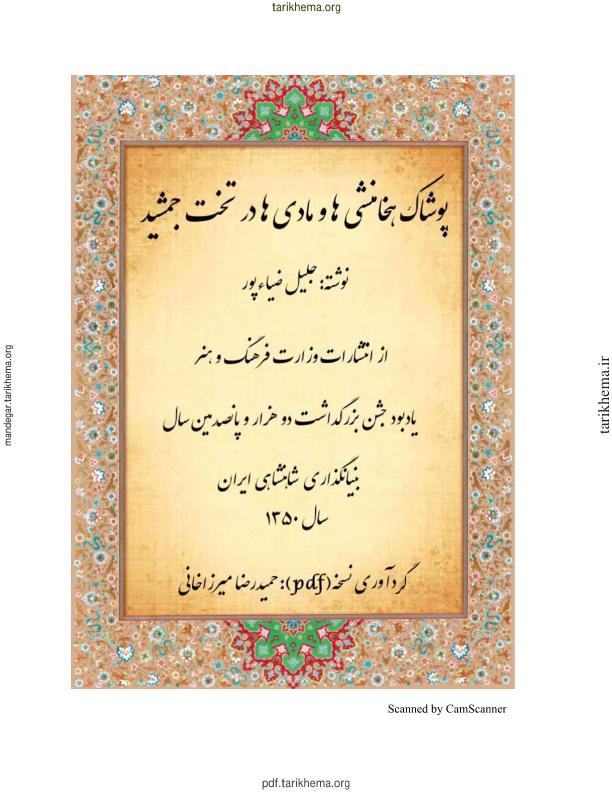 tarikhema.org
پوشاک هخامنشی ها و مادی ها در تخت جمشید
نوشته: جلیل ضیاءپور
از انتشارات وزارت فرهنگ و هنر
یادبود جشن بزرگداشت دو هزار و پانصدمین سال
بنیانگذاری شاهنشاهی ایران
سال ۱۳۵۰
گردآوری نسخه (pdf): حمیدرضا میرزاخانی
mandegar.tarikhema.org
tarikhema.ir
Scanned by CamScanner
pdf.tarikhema.org